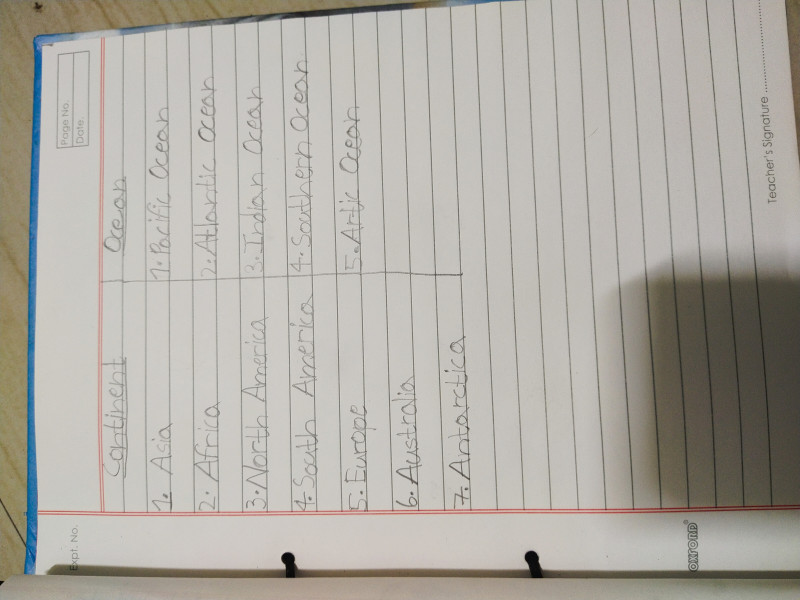 Page No.
Date
Expt. No.
Continent Ocean
1. Asia 1. Pacific Ocean
2. Africa 2. Atlantic Ocean
3. North America 3. Indian Ocean
4. South America 4. Southern Ocean
5. Europe 5. Artic Ocean
6. Australia
7. Antarctica
OXFORD
Teacher's Signature